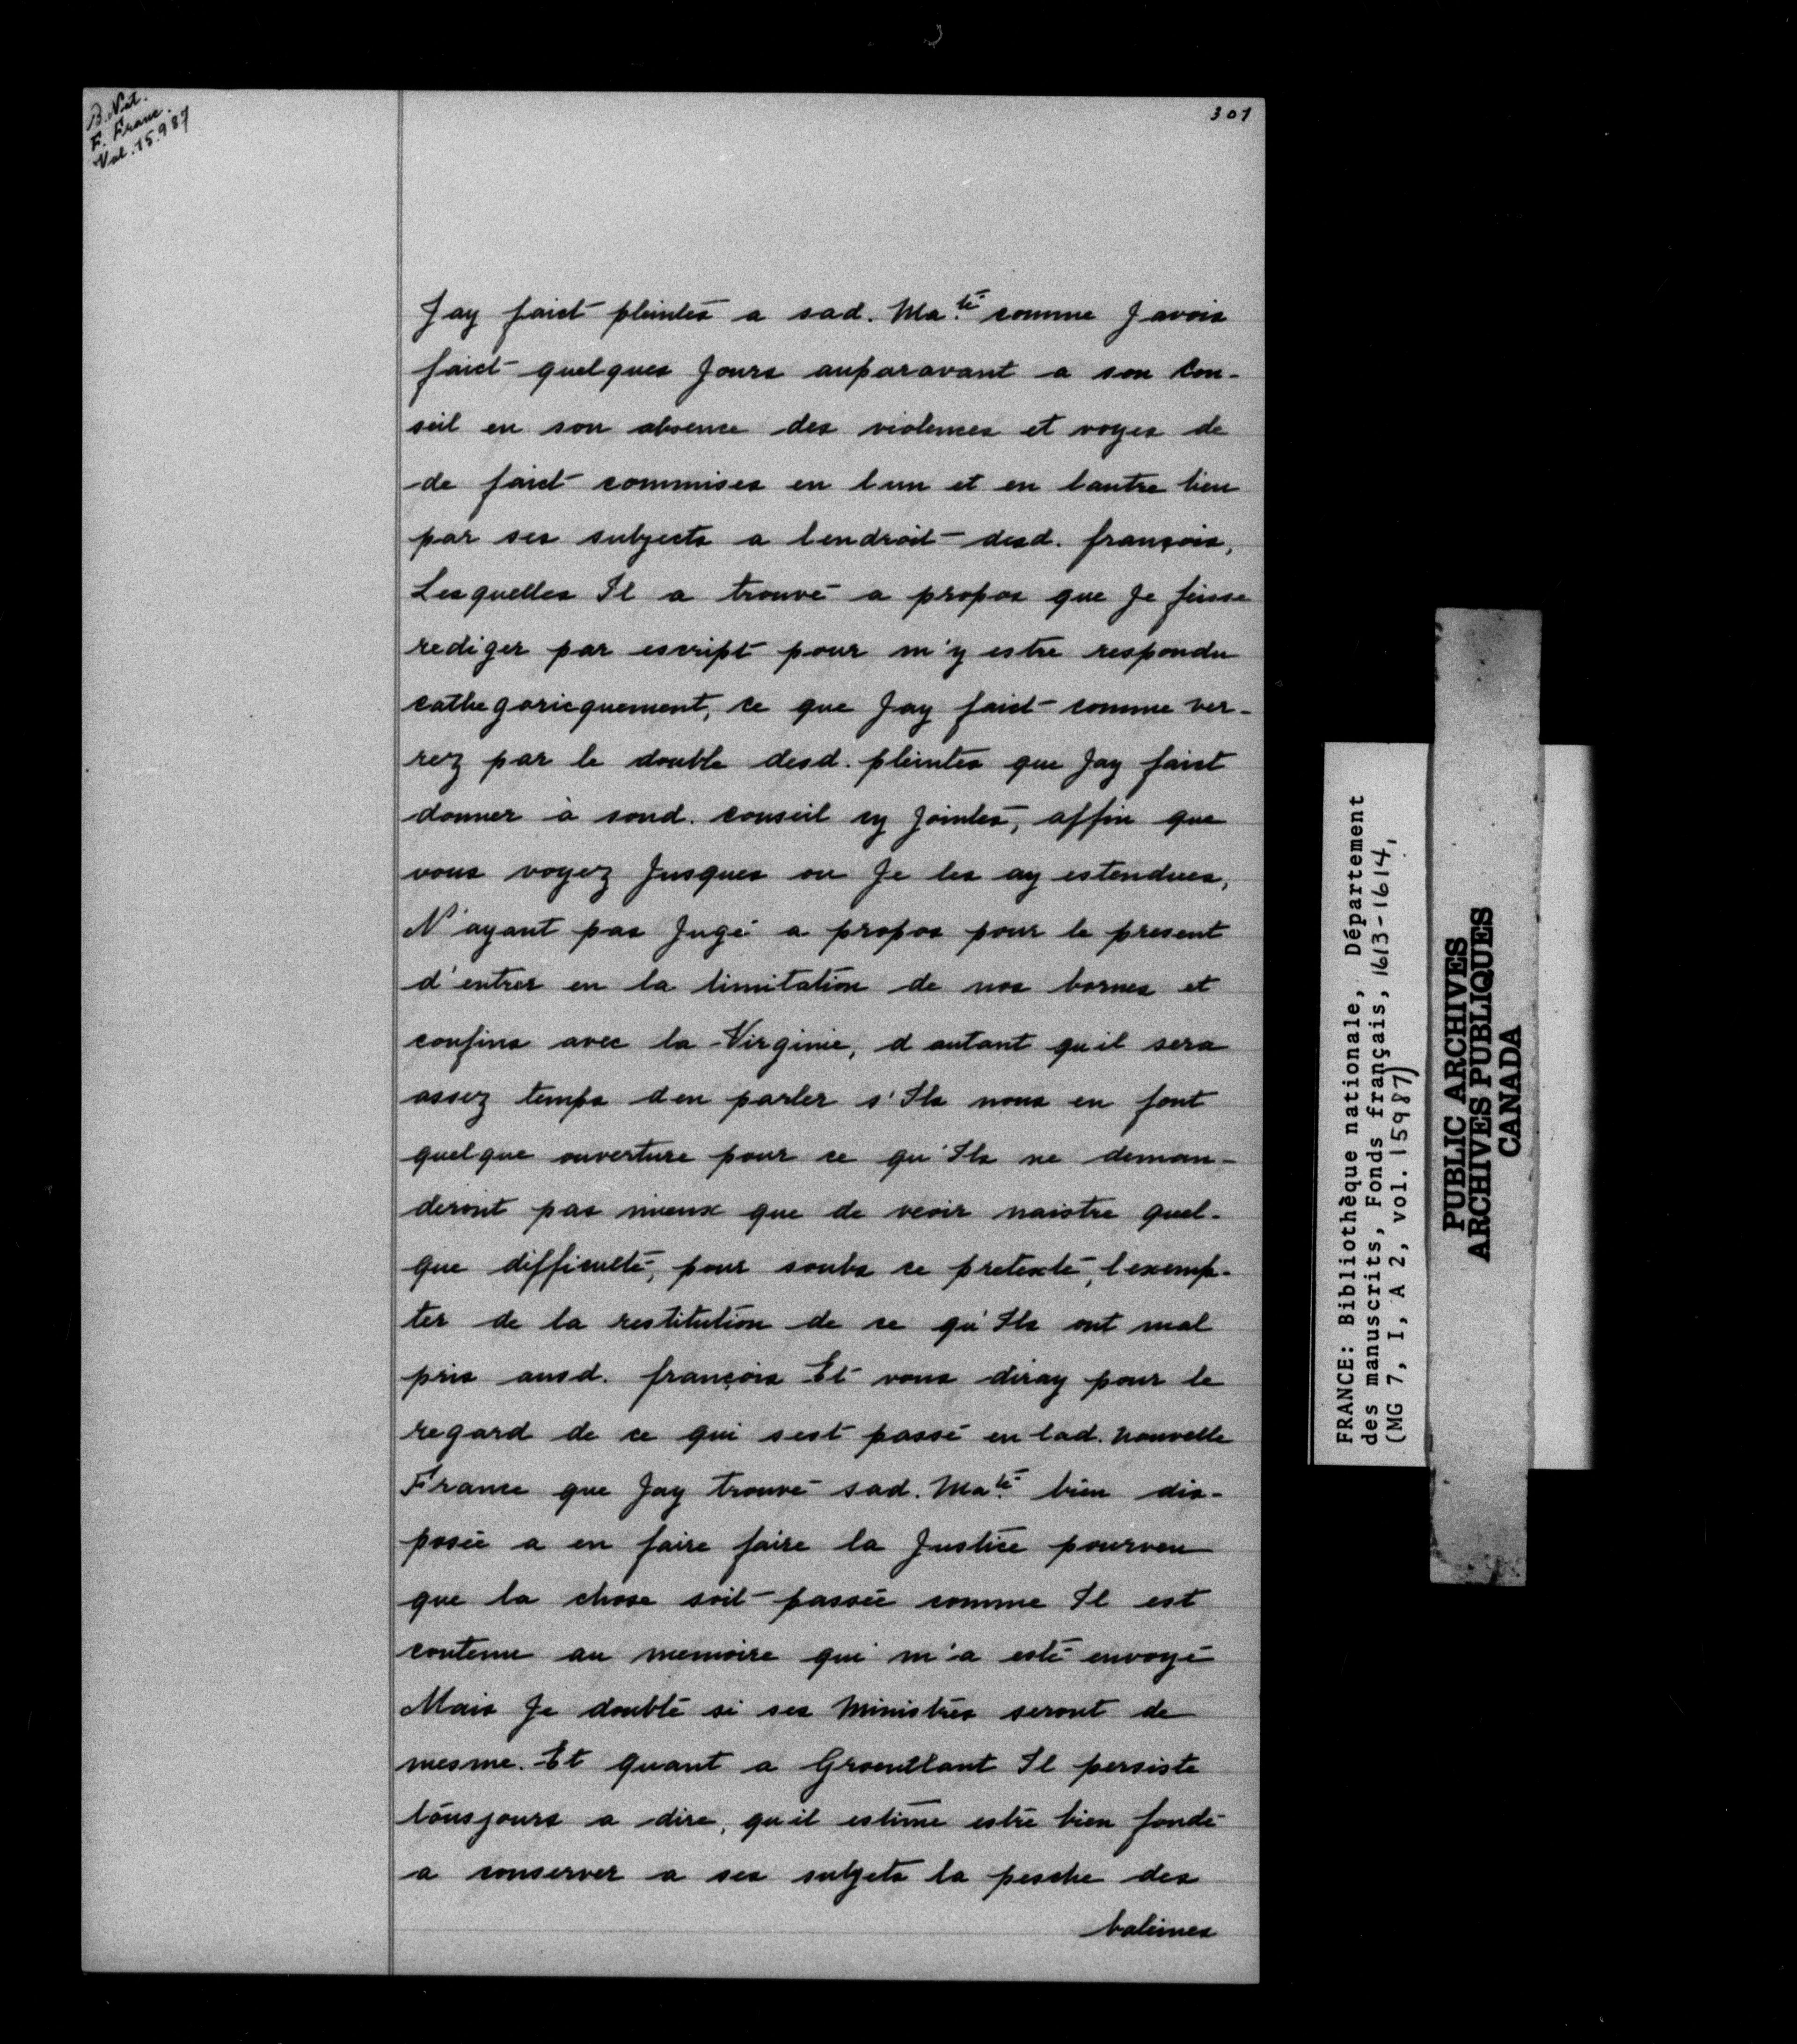 B. Nat.
F. Franc.
Vol. 15.987
301
Jay faict pleintes a sad. Ma.té comme Javois
faict quelques Jours auparavant a son Con-
seil en son absence des violences et voyes de
de faict commises en lun et en lautre lieu
par ses subjects a lendroit desd. françois,
Lesquelles Il a trouvé a propos que Je feisse
rediger par escript pour m'y estre respondu
cathegoricquement, ce que Jay faict comme ver-
rez par le double desd. pleintes que Jay faict
donner à sond. conseil cy Jointes, affin que
vous voyez Jusques ou Je les ay estendues,
N'ayant pas Jugé a propos pour le present
d'entrer en la limitation de nos bornes et
confins avec la Virginie, d autant quil sera
assez temps den parler s'Ils nous en font
quelque ouverture pour ce qu'Ils ne deman-
deront pas mieux que de veoir naistre quel-
que difficulté, pour soubs ce pretexte, lexemp-
ter de la restitution de ce qu'Ils ont mal
pris ausd. françois Et vous diray pour le
regard de ce qui sest passé en lad. nouvelle
France que Jay trouvé sad. Ma.té bien dis-
posée a en faire faire la Justice pourveu
que la chose soit passée comme Il est
contenu au memoire qui m'a esté envoyé
Mais Je doubte si ses Ministres seront de
mesme. Et quant a Groentlant Il persiste
tousjours a dire, quil estime estre bien fondé
a conserver a ses subjets la pesche des
baleines
FRANCE: Bibliothèque nationale, Département
des manuscrits, Fonds français, 1613-1614,
(MG 7, I, A 2, vol. 15987)
PUBLIC ARCHIVES
ARCHIVES PUBLIQUES
CANADA